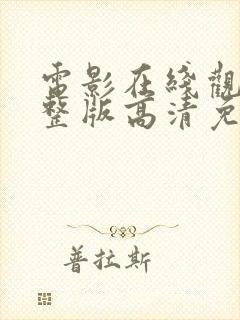 電影在綫觀
整版高清免
普拉斯